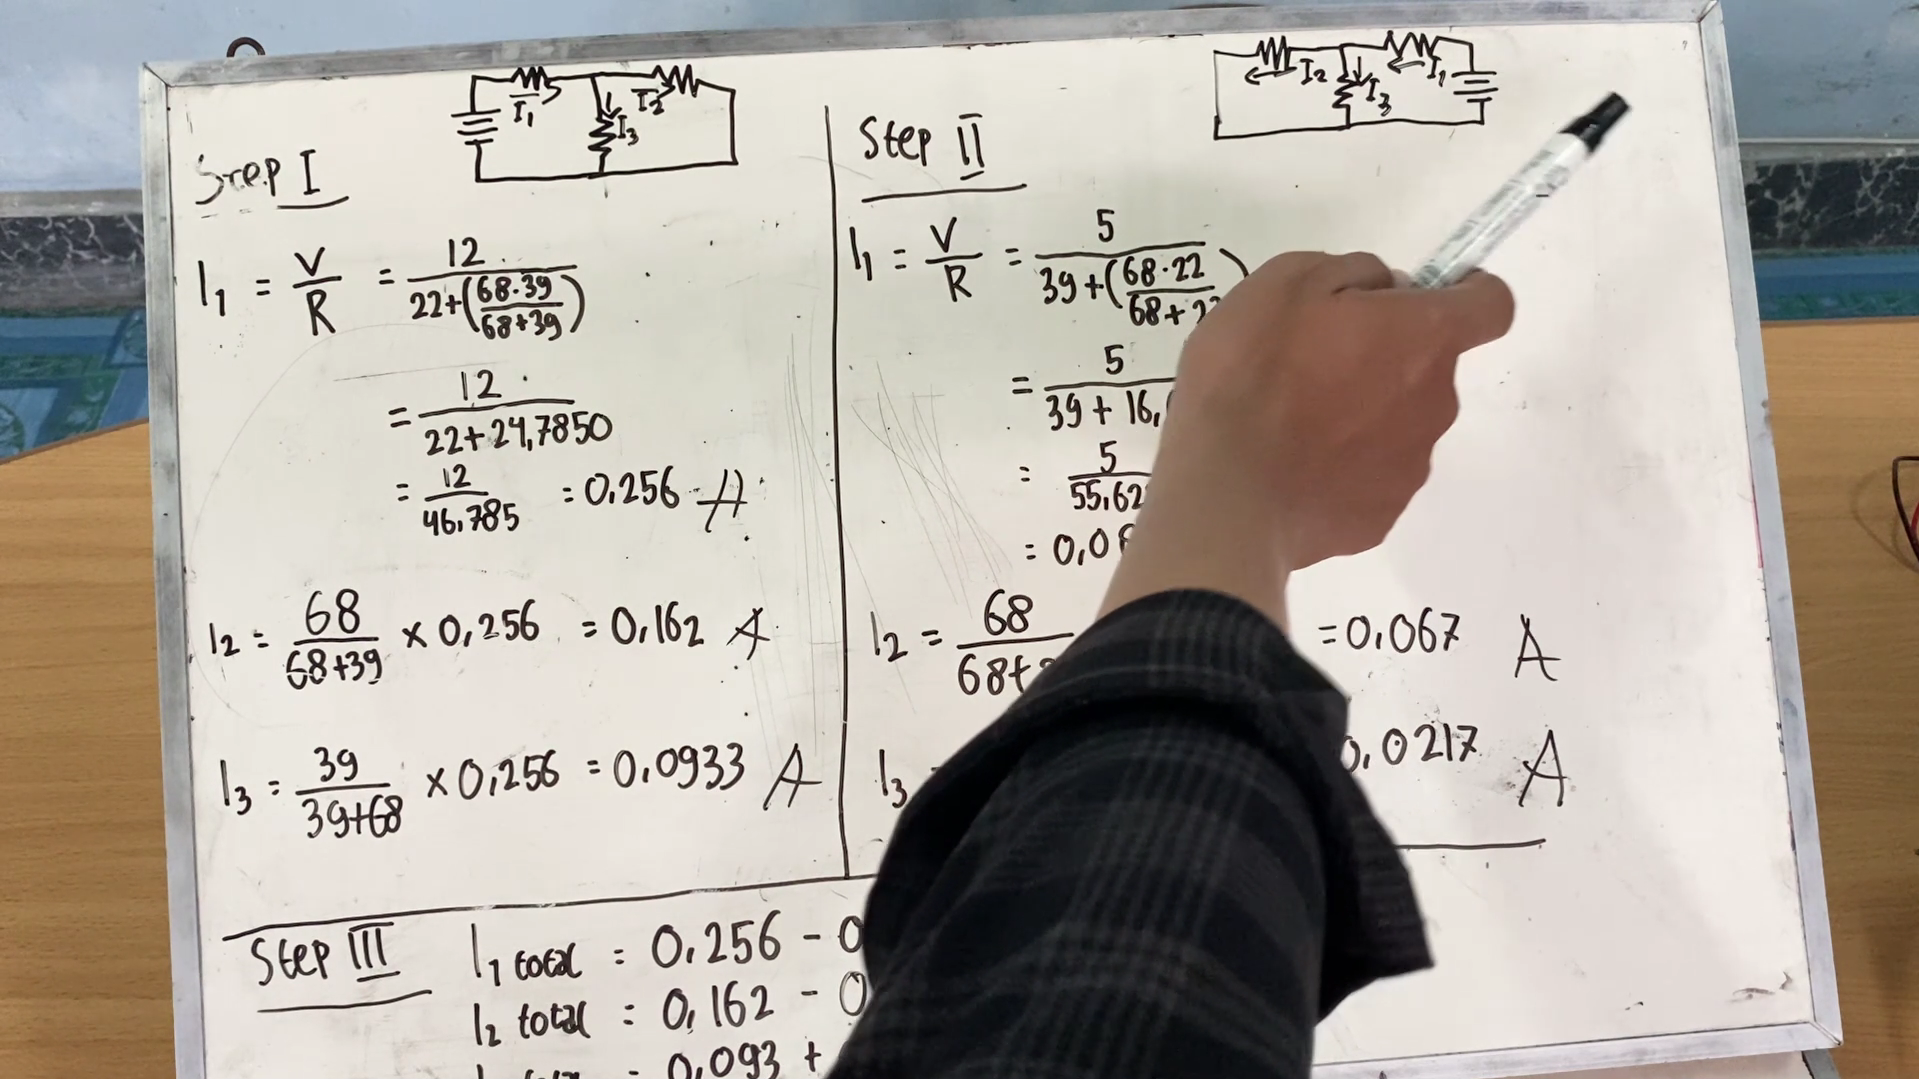 I₁
I₂
I₃
Step I
I₁ = V/R = 12/(22+(68·39/68+39))
= 12/(22+24,7850)
= 12/46,785 = 0,256 A
I₂ = 68/(68+39) × 0,256 = 0,162 A
I₃ = 39/(39+68) × 0,256 = 0,0933 A
I₂
I₃
I₁
Step II
I₁ = V/R = 5/(39+(68·22/68+2
= 5/(39+16,
= 5/55,62
= 0,0
I₂ = 68/68+ = 0,067 A
I₃ 0,0217 A
Step III
I₁ total = 0,256 - 0
I₂ total = 0,162 - 0
= 0,093 +